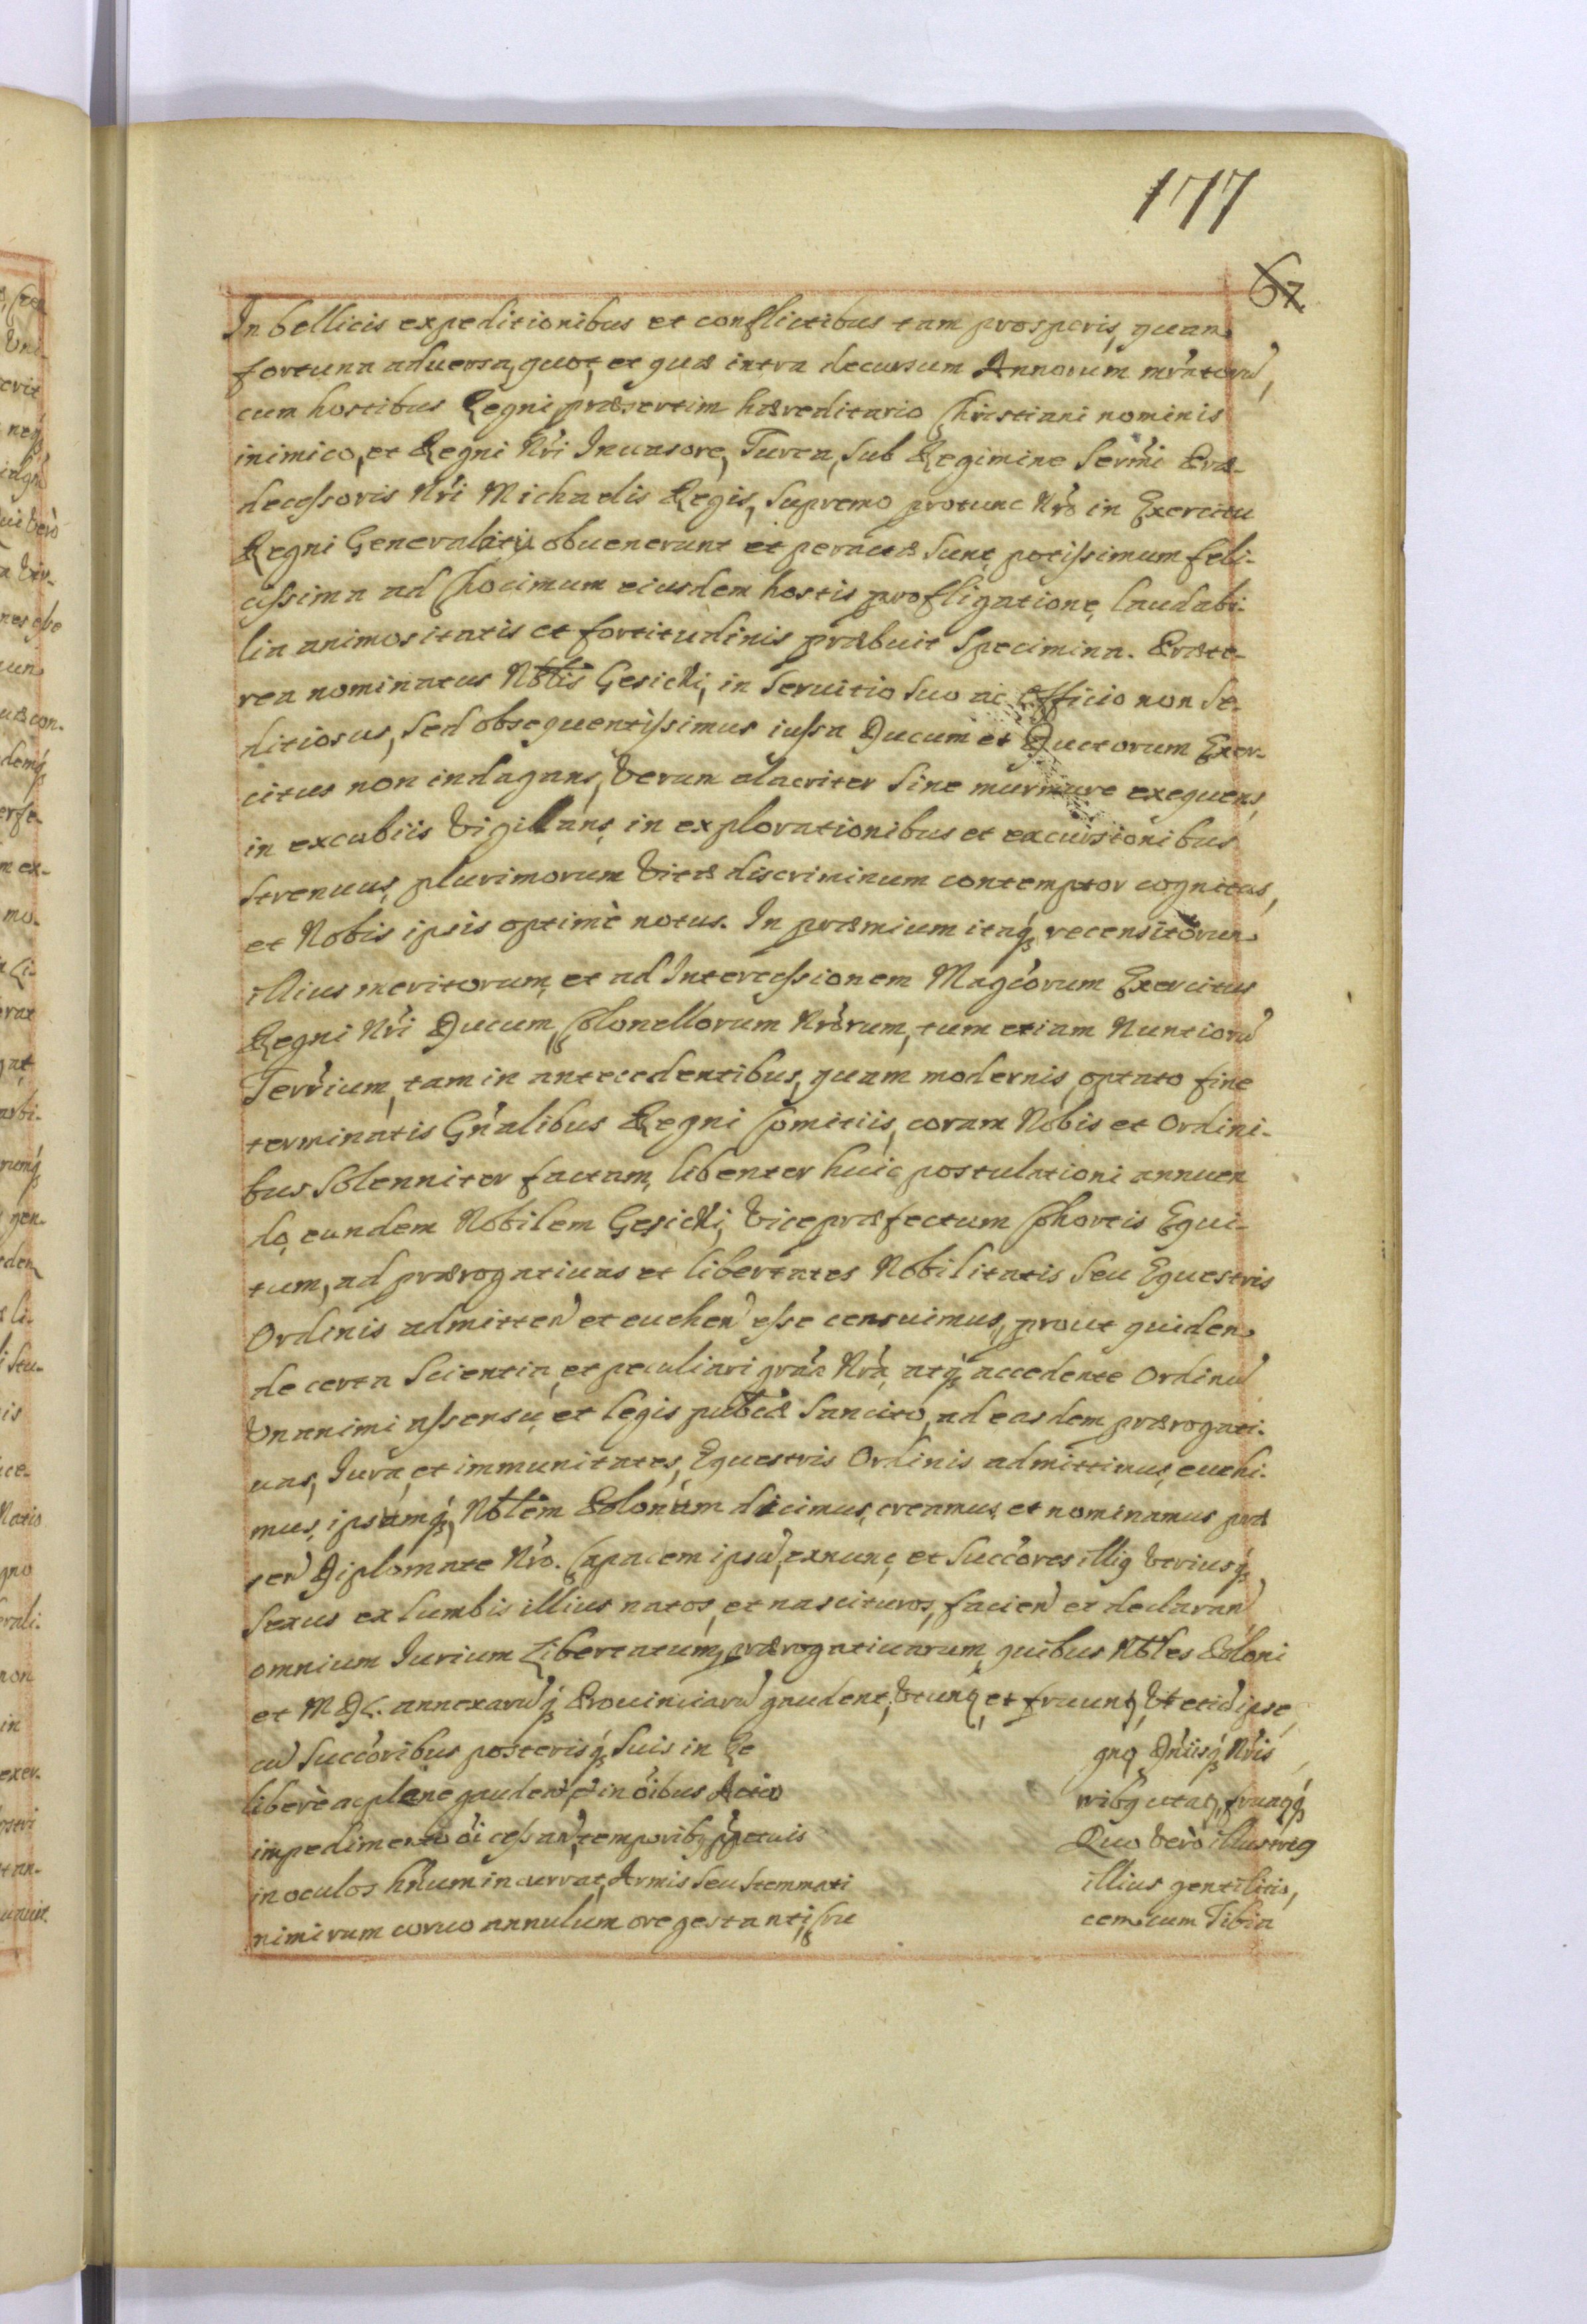 177
67
In bellicis expeditionibus et conflictibus tam prosperis, quam
fortuna aduersa, quot, et quæ intra decursum Annorum mr̃atorũ,
cum hostibus Regni præsertim hæreditario Christiani nominis
inimico, et Regni Nr̃i Inuasore, Turca, Sub Regimine Serm̃i Præ-
decessoris Nr̃i Michaelis Regis, Supremo protunc Nr̃o in Exercitu
Regni Generalatu obuenerunt et peractæ Sunt, potissimum feli-
cissima ad Chocimum eiusdem hostis profligatione, laudabi-
lia animositatis et fortitudinis præbuit Specimina. Præte-
rea nominatus Nobl̃is Gesicki, in Seruitio Suo ac Officio non Se-
ditiosus, Sed obsequentissimus iussa Ducum et Ductorum Exer-
citus non indagans, Verum alacriter Sine murmure exequens,
in excubiis Vigillans, in explorationibus et excursionibus
Strenuus, plurimorum Vitæ discriminum contemptor cognitus,
et Nobis ipsis optimè notus. In præmium itaq̃ recensitorum
illius meritorum, et ad Intercessionem Magcorum Exercitus
Regni Nr̃i Ducum, Colonellorum Nr̃orum, tum etiam Nuntiorũ
Terr̃ium, tam in antecedentibus, quam modernis optato fine
terminatis Gñalibus Regni Comitiis, coram Nobis et Ordini-
bus Solenniter factam, libenter huic postulationi annuen
do, eundem Nobilem Gesicki, Vicepræfectum Cohortis Equi-
tum, ad prærogatiuas et libertates Nobilitatis Seu Equestris
Ordinis admitteñ et euehen̄ esse censuimus, prout quidem
de certa Scientia, et peculiari gra̅a Nr̃a, atq̃ accedente Ordinũ
Vnanimi assensu, et legis publ̃cæ Sancito, ad easdem prærogati-
uas, Iura, et immunitates, Equestris Ordinis admittimus, euehi-
mus, ipsumq̃, Nobl̃em Polonum dicimus, creamus, et nominamus præ
sen̄ Diplomate Nr̃o. Capacem ipsũ, exnunc, et Succ̃ores illiq̃ utriusq̃
Sexus ex lumbis illius natos, et nascituros, facien̄ et declaran̄
omnium Iurium Libertatum, prærogatiuarum, quibus Nobl̃es Poloni
et M D L. annexarũq̃ Prouinciarũ gaudent, Vtunt̃, et fruunt̃, Vt etiã ipse
cũ Succ̃oribus posterisq̃ Suis in Re gno, Dñiisq̃ Nr̃is
liberè ac plane gaudeat, et in õibus Actio nibq̃ utat̃, fruatq̃
impedimento õi cessan̄, temporibq̃ ppetuis Quo Verò illustriq̃
in oculos hñum incurrat, Armis Seu Stemmati illius gentilitio,
nimirum coruo annulum ore gestanti, Cru cem cum Tibia